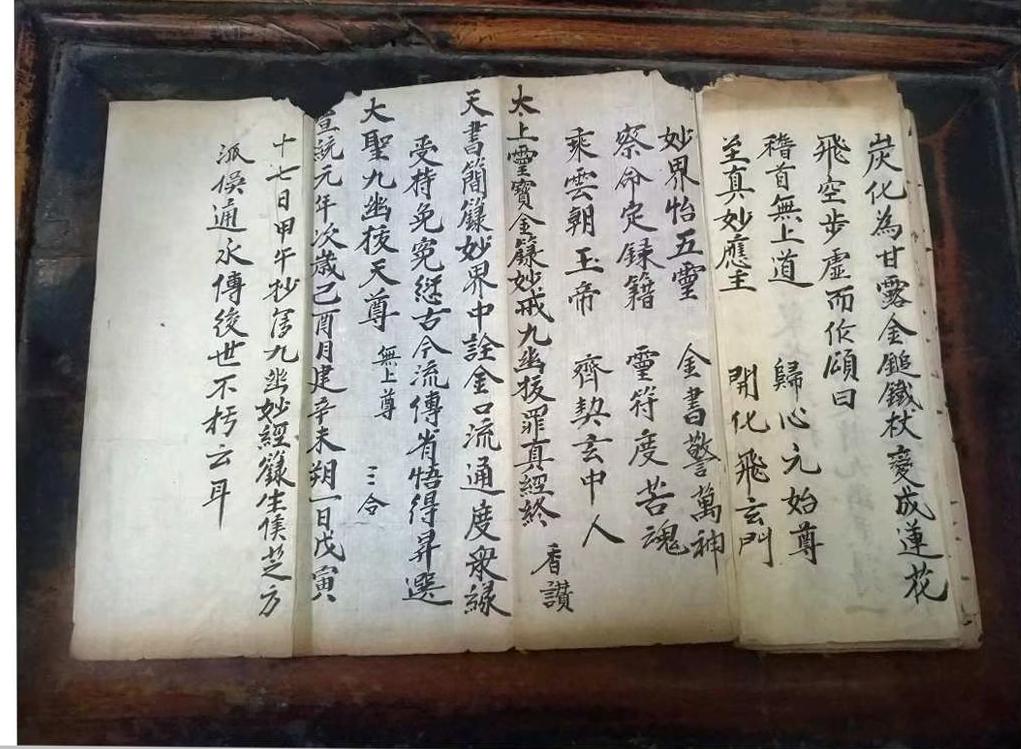 炭化為甘露金鎚鐵杖變成蓮花
飛空步虛而作頌曰
稽首無上道 歸心元始尊
至真妙應主 開化飛玄門
妙界怡五靈 金書警萬神
察命定録籍 靈符度苦魂
乘雲朝玉帝 齊契玄中人
太上靈寶金籙妙戒九幽拔罪真經終 香讚
天書簡籙妙界中詮金口流通度衆緣
受持免寃愆古今流傳省悟得昇選
大聖九幽拔天尊 無上尊 三合
宣統元年次歳己酉月建辛未朔一日戊寅
十七日甲午抄寫九幽妙經籙生侯芝方
派侯通永傳後世不朽云耳